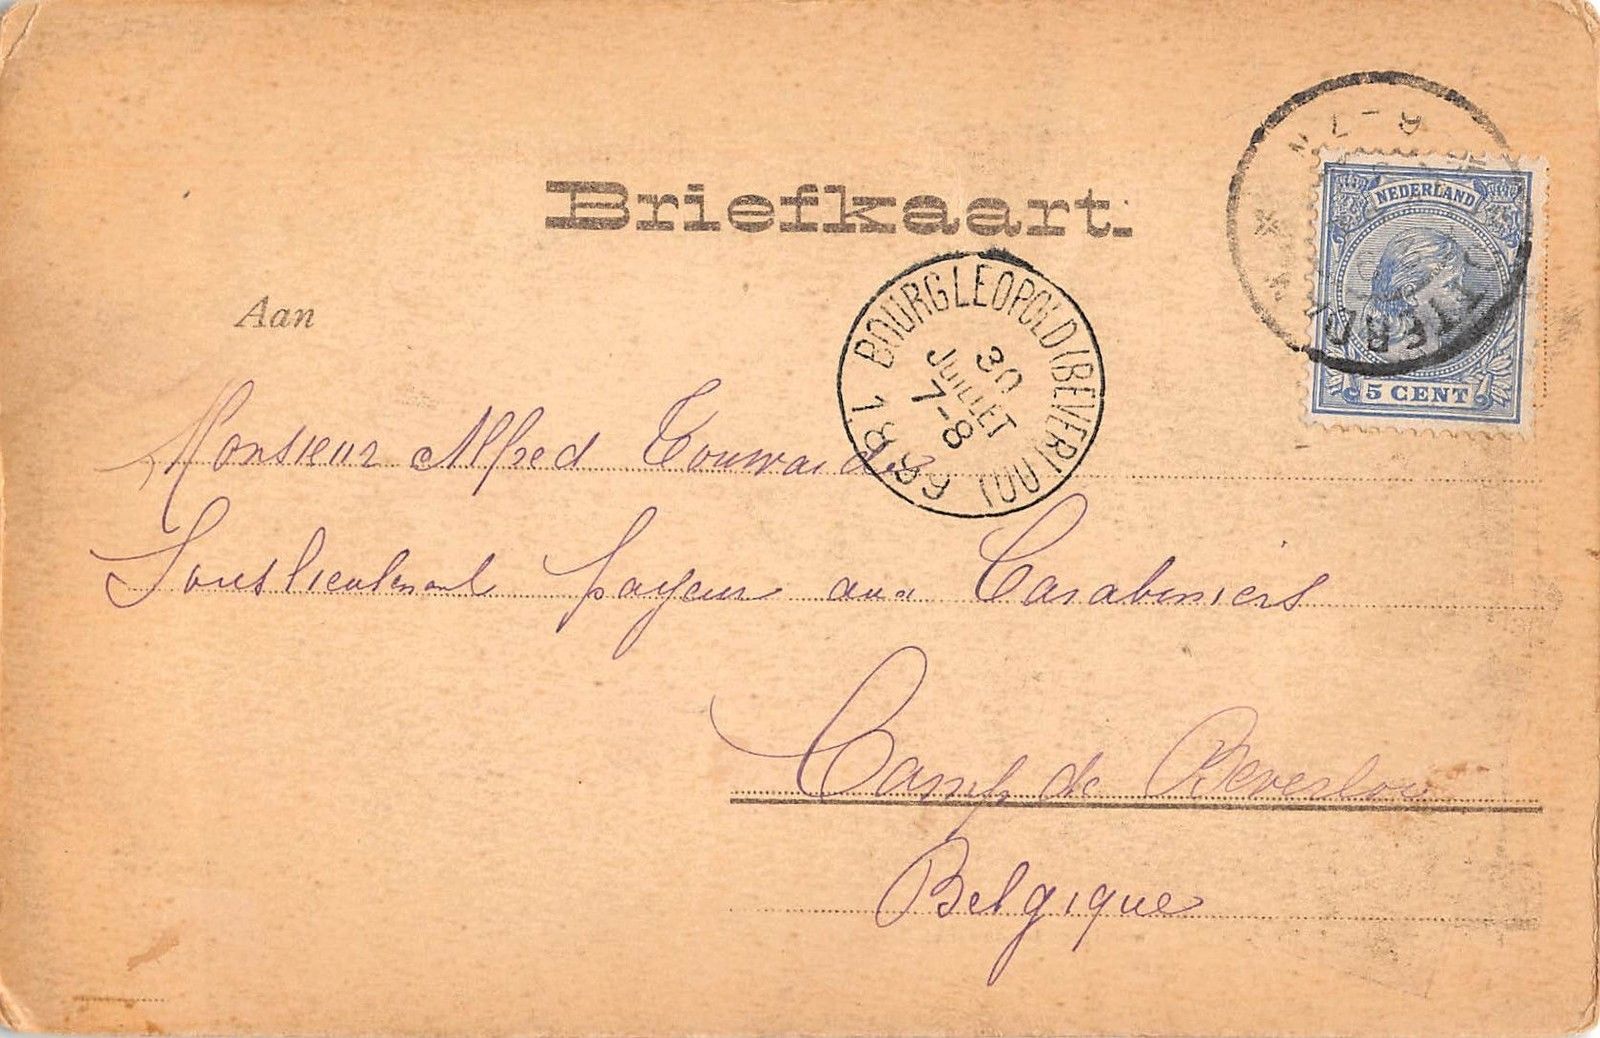 Briefkaart.
NEDERLAND
5 CENT
BOURG LEOPOLD (BEVERLOO)
30
JUILLET
7-8
1899
Aan
Monsieur Alfred
Souslieutenant payeur aux Carabiniers
Camp de Beverloo
Belgique